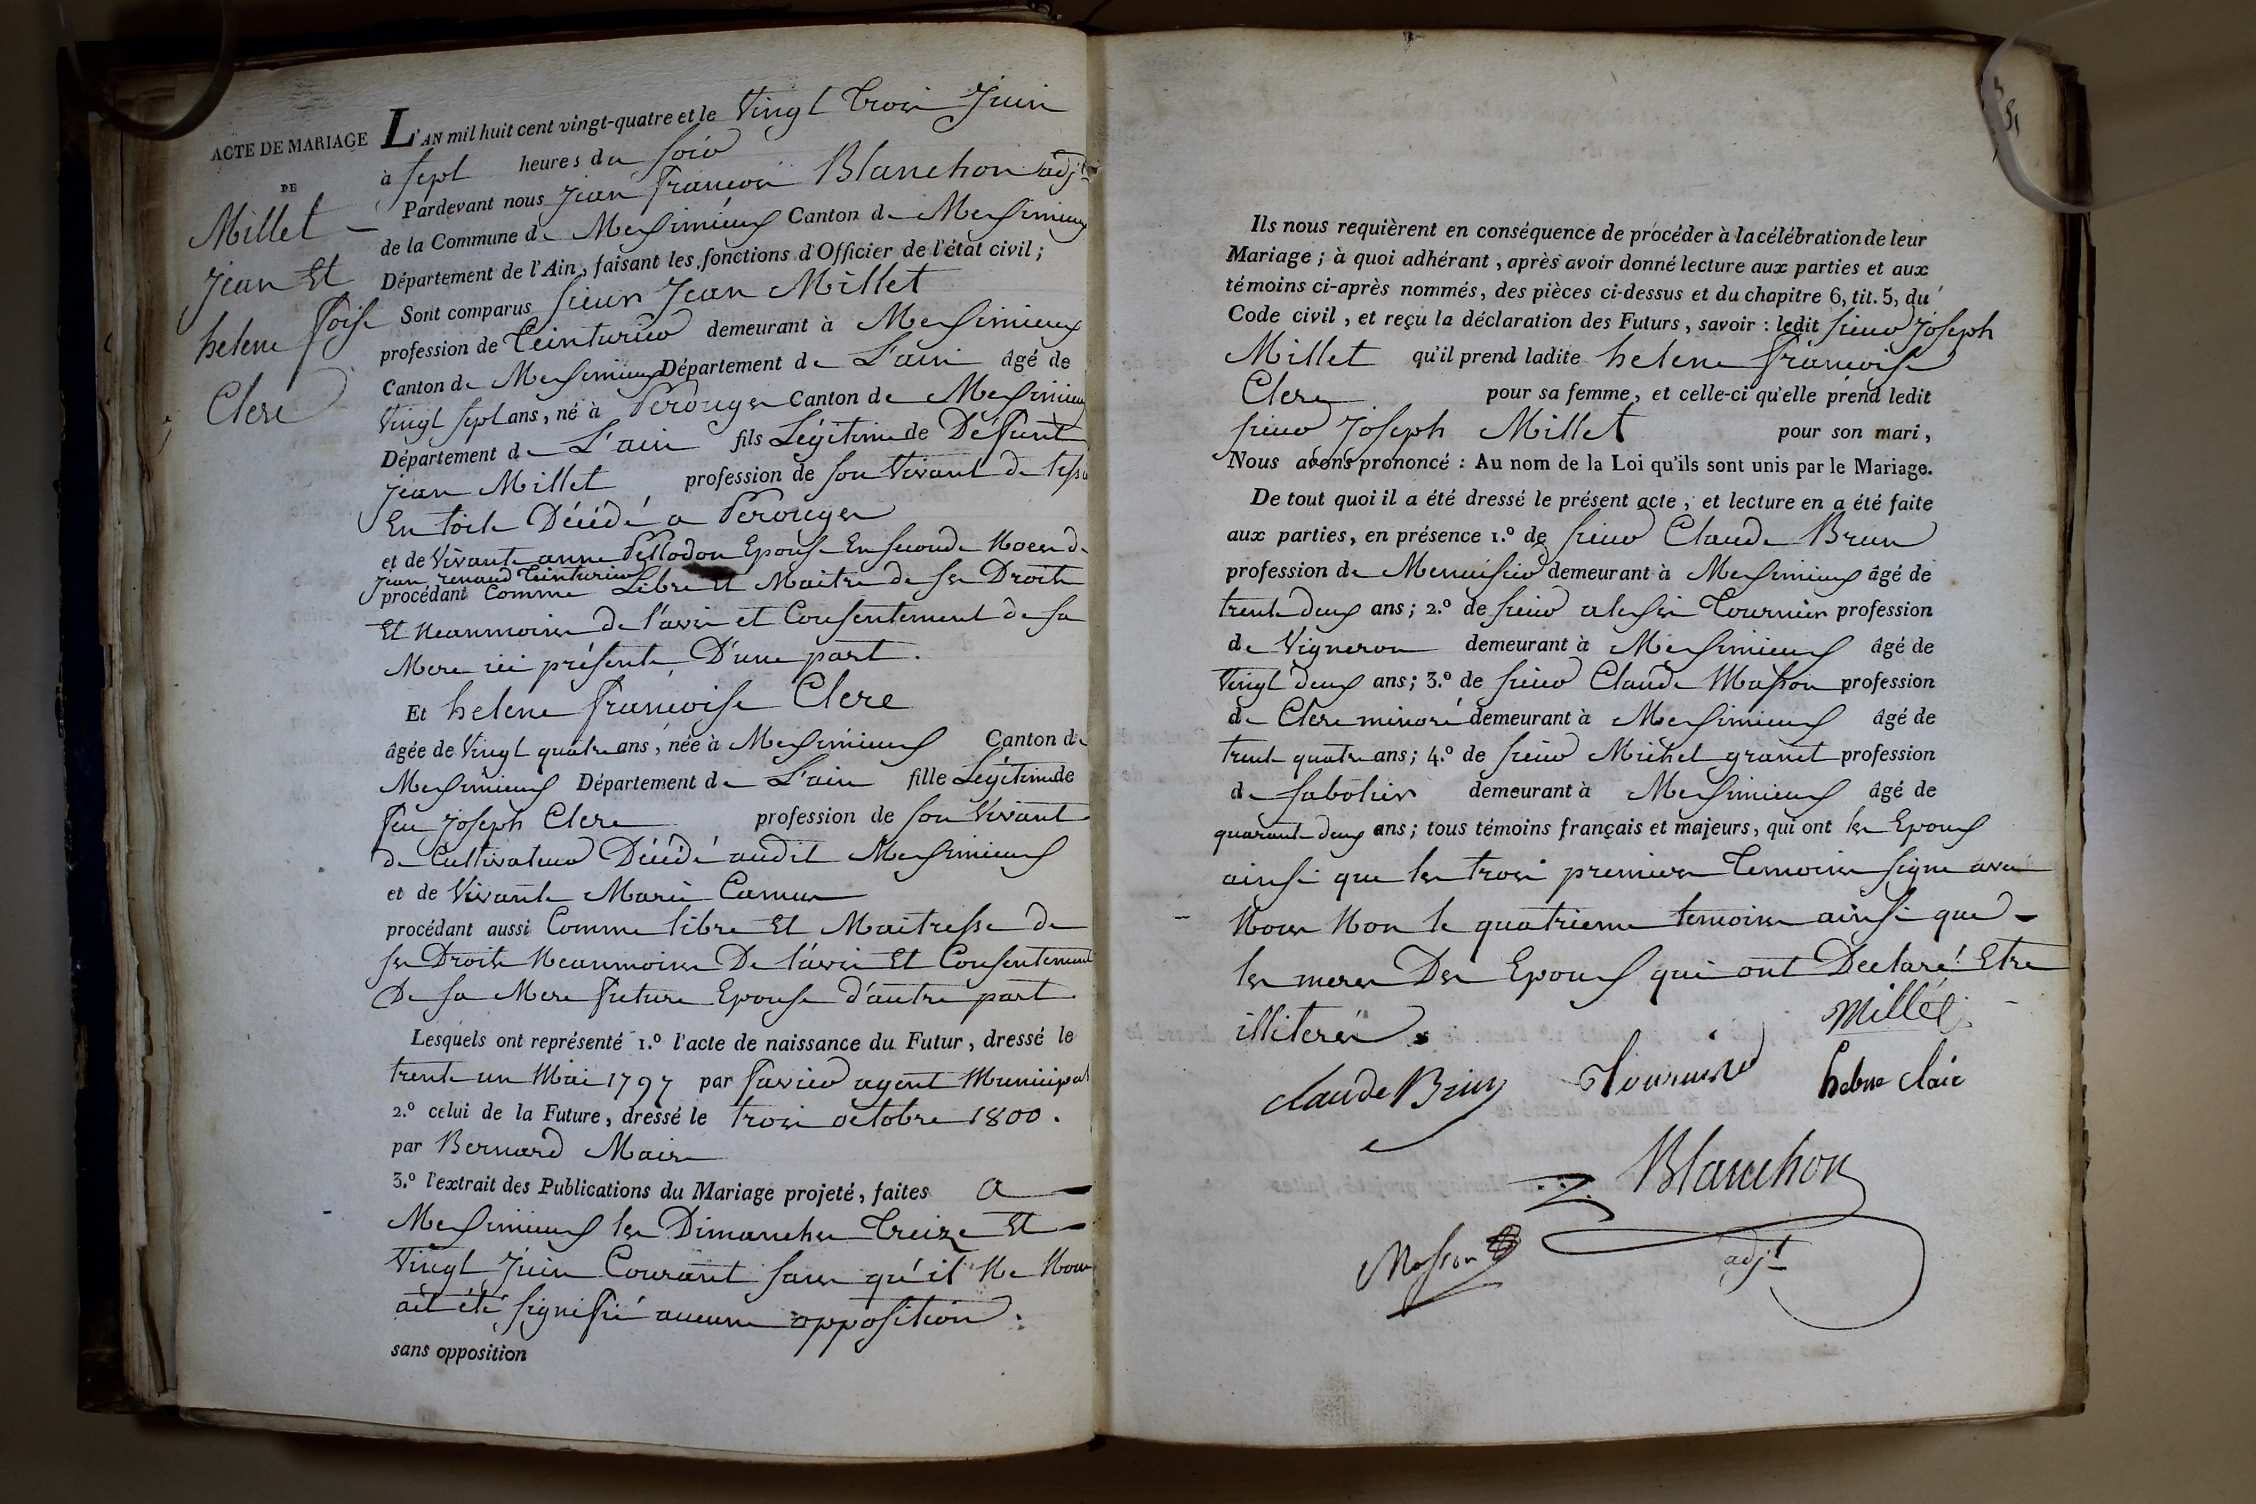 ACTE DE MARIAGE
DE
Millet
Jean Et
helene foise
Clere
L'AN mil huit cent vingt-quatre et le Vingt trois Juin
à sept heures du soir
Pardevant nous jean françois Blanchon adjt
de la Commune de Meximieux Canton de Meximieux
Département de l'Ain, faisant les fonctions d'Officier de l'état civil;
Sont comparus sieur Jean Millet
profession de teinturier demeurant à Meximieux
Canton de Meximieux Département de L'ain âgé de
Vingt sept ans, né à Perouges Canton de Meximieux
Département de L'ain fils Légitime de Défunt
jean Millet profession de son Vivant de
En toile Décédé a Perouges
et de Vivante anne Pellodon Epouse En seconde Noces de
jean renaud teinturier
procédant Comme Libre Et Maitre de ses Droits
Et Neanmoins de l'avis et Consentement de sa
Mere ici présente D'une part.
Et helene françoise Clere
âgée de Vingt quatre ans, née à Meximieux Canton de
Meximieux Département de L'ain fille Légitime de
feu joseph Clere profession de son Vivant
de Cultivateur Décédé audit Meximieux
et de Vivante Marie Camus
procédant aussi Comme libre Et Maitresse de
ses Droits Neanmoins De l'avis Et Consentement
De sa Mere future Epouse d'autre part
Lesquels ont représenté 1.º l'acte de naissance du Futur, dressé le
trente un Mai 1797 par agent Municipal
2.º celui de la Future, dressé le trois octobre 1800.
par Bernard Maire
3.º l'extrait des Publications du Mariage projeté, faites a
Meximieux les Dimanches treize Et
Vingt Juin Courant sans qu'il Ne Nous
ait été signifié aucune opposition.
sans opposition
Ils nous requièrent en conséquence de procéder à la célébration de leur
Mariage; à quoi adhérant, après avoir donné lecture aux parties et aux
témoins ci-après nommés, des pièces ci-dessus et du chapitre 6, tit. 5, du
Code civil, et reçu la déclaration des Futurs, savoir: ledit sieur joseph
Millet qu'il prend ladite helene françoise
Clere pour sa femme, et celle-ci qu'elle prend ledit
sieur joseph Millet pour son mari,
Nous avons prononcé: Au nom de la Loi qu'ils sont unis par le Mariage.
De tout quoi il a été dressé le présent acte, et lecture en a été faite
aux parties, en présence 1.º de sieur Claude Brun
profession de Menuisier demeurant à Meximieux âgé de
trente deux ans; 2.º de sieur alexis Tournier profession
de Vigneron demeurant à Meximieux âgé de
Vingt deux ans; 3.º de sieur Claude Masson profession
de Clerc minoré demeurant à Meximieux âgé de
trente quatre ans; 4.º de sieur Michel granet profession
de sabotier demeurant à Meximieux âgé de
quarante deux ans; tous témoins français et majeurs, qui ont les Epoux
ainsi que les trois premiers temoins signe avec
Nous Non le quatrieme temoins ainsi que
les meres Des Epoux qui ont Declaré Etre
illiterés
Millet
claude Brun Tournier helene clair
Blanchon
Masson
adjt